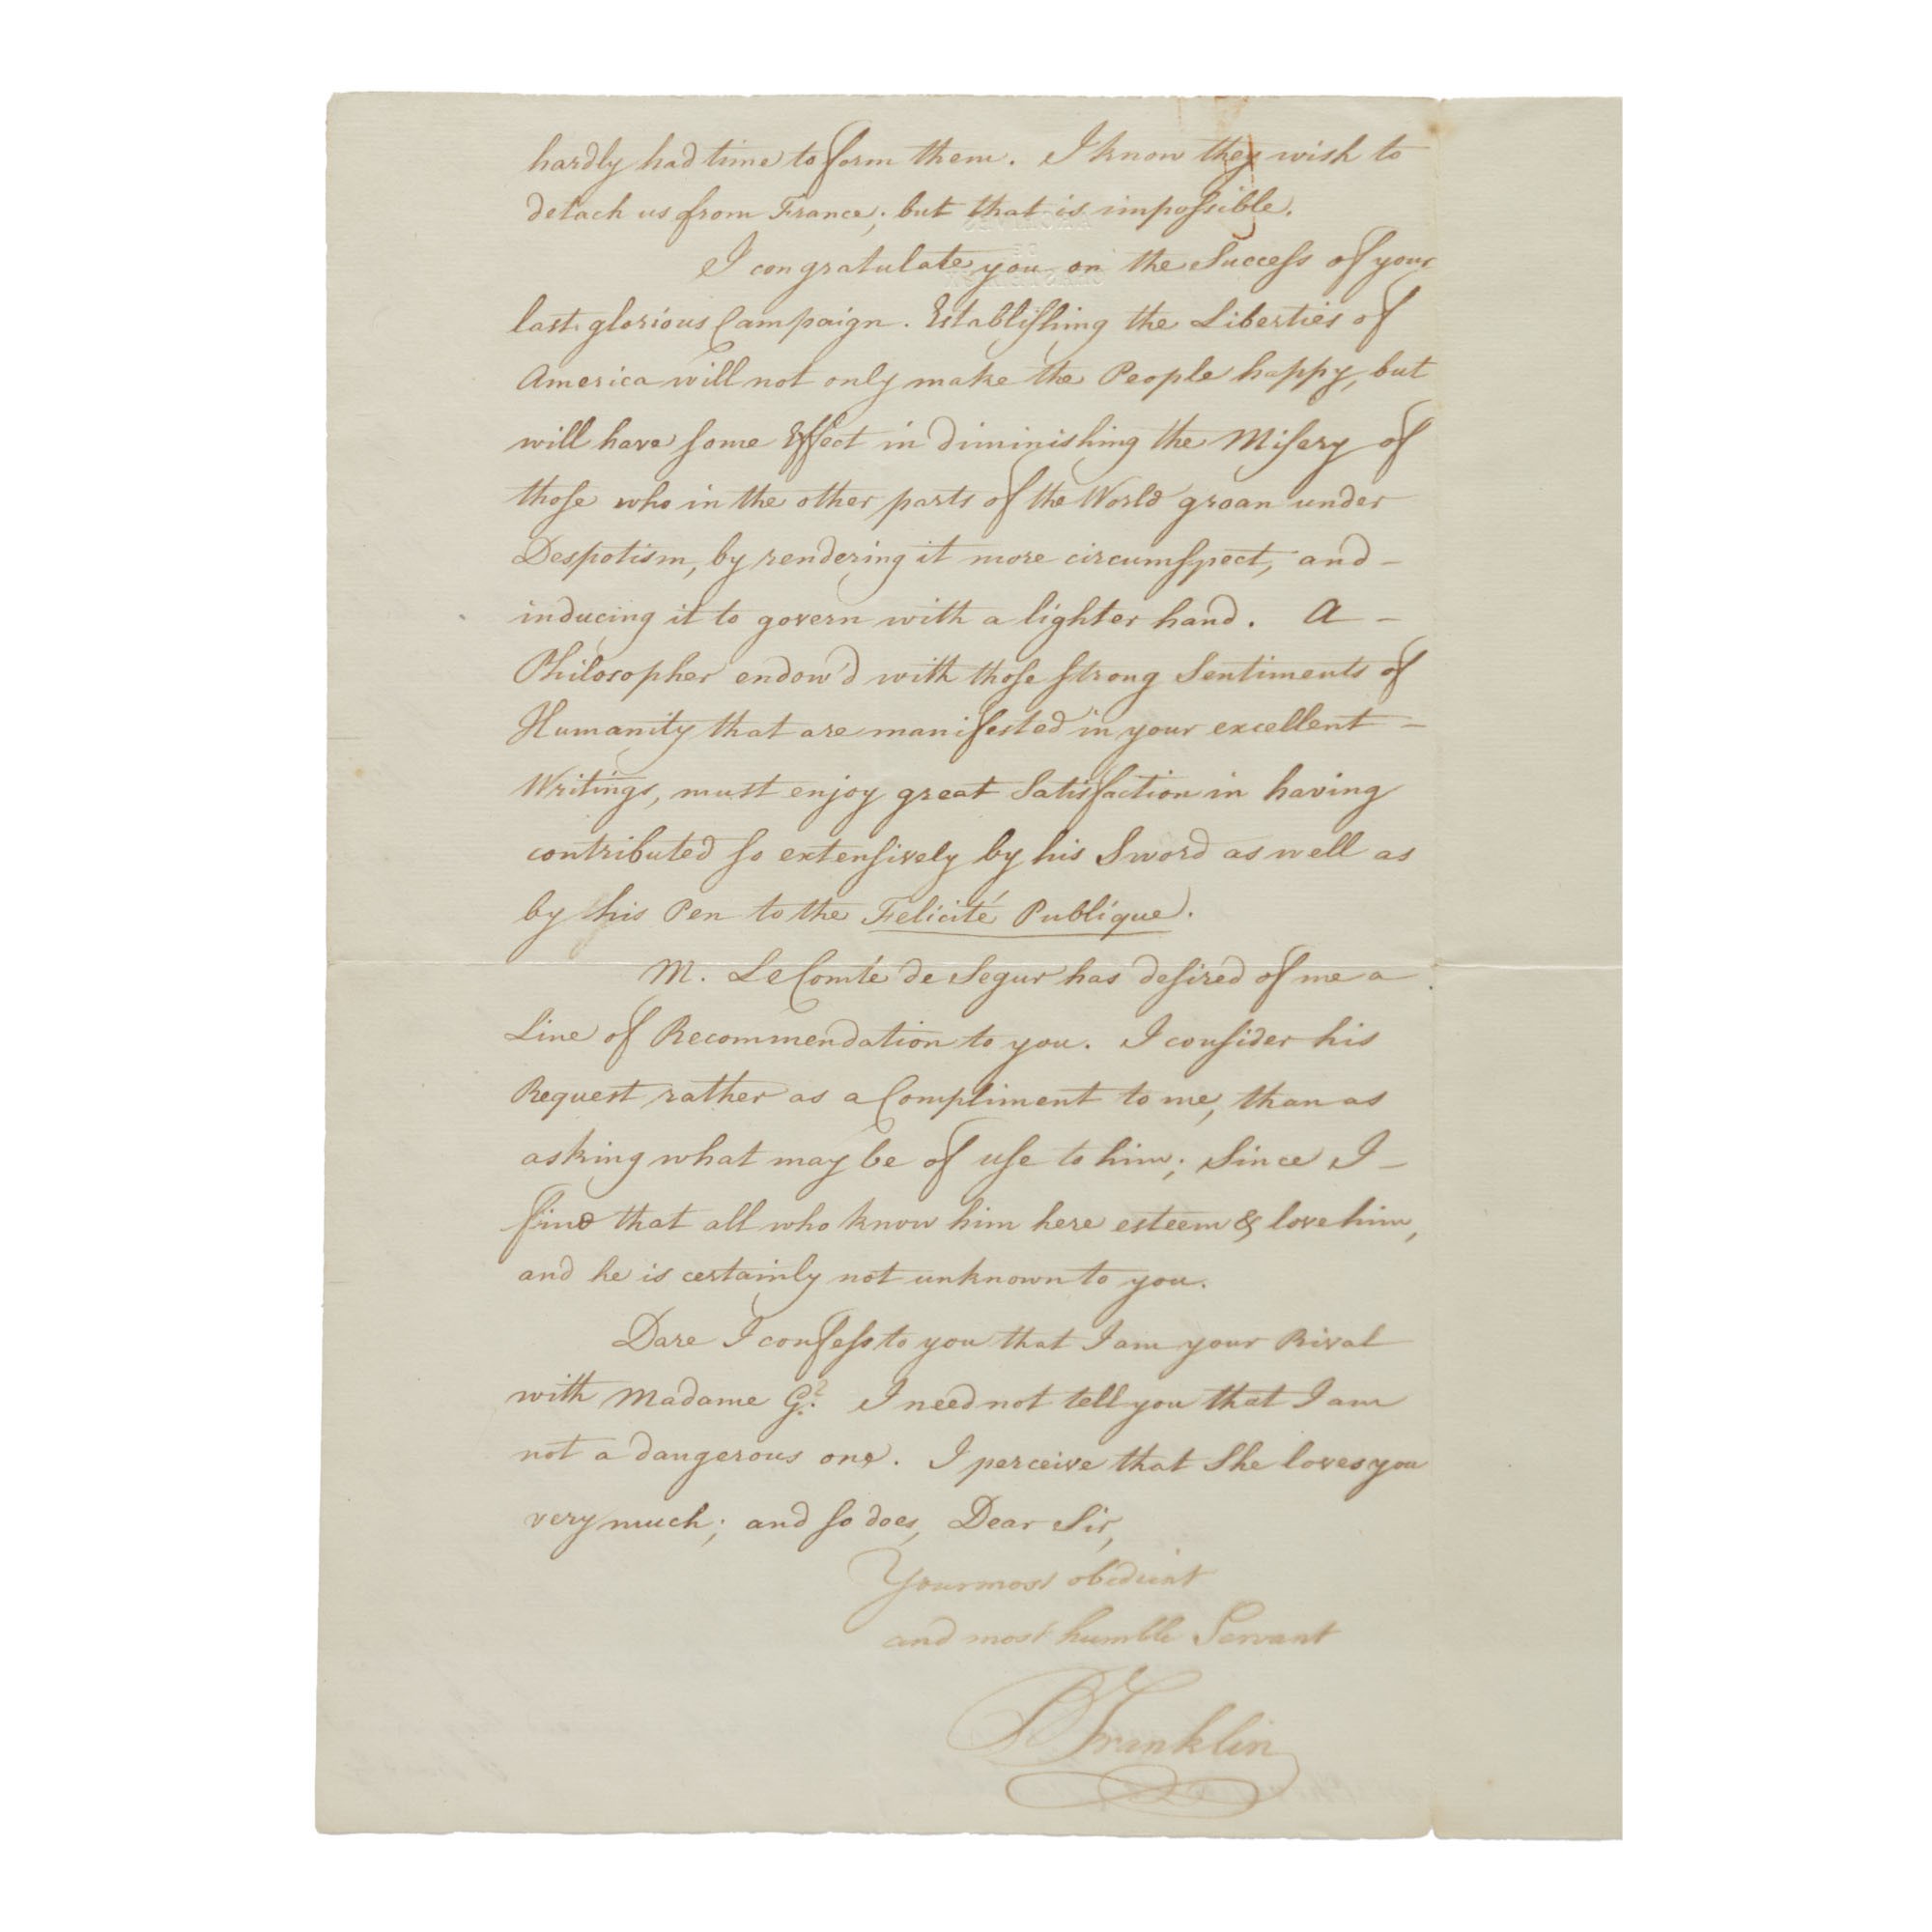 hardly had time to form them. I know they wish to
detach us from France; but that is impossible.
I congratulate you on the Success of your
last glorious Campaign. Establishing the Liberties of
America will not only make the People happy, but
will have some Effect in diminishing the Misery of
those who in the other parts of the World groan under
Despotism, by rendering it more circumspect, and -
inducing it to govern with a lighter hand. A -
Philosopher endow'd with those strong Sentiments of
Humanity that are manifested in your excellent -
Writings, must enjoy great Satisfaction in having
contributed so extensively by his Sword as well as
by his Pen to the Felicité Publique.
M. Le Comte de Segur has desired of me a
Line of Recommendation to you. I consider his
Request rather as a Compliment to me, than as
asking what may be of use to him; Since I -
find that all who know him here esteem & love him,
and he is certainly not unknown to you.
Dare I confess to you that I am your Rival
with Madame G.? I need not tell you that I am
not a dangerous one. I perceive that She loves you
very much; and so does, Dear Sir,
Your most obedient
and most humble Servant
B Franklin